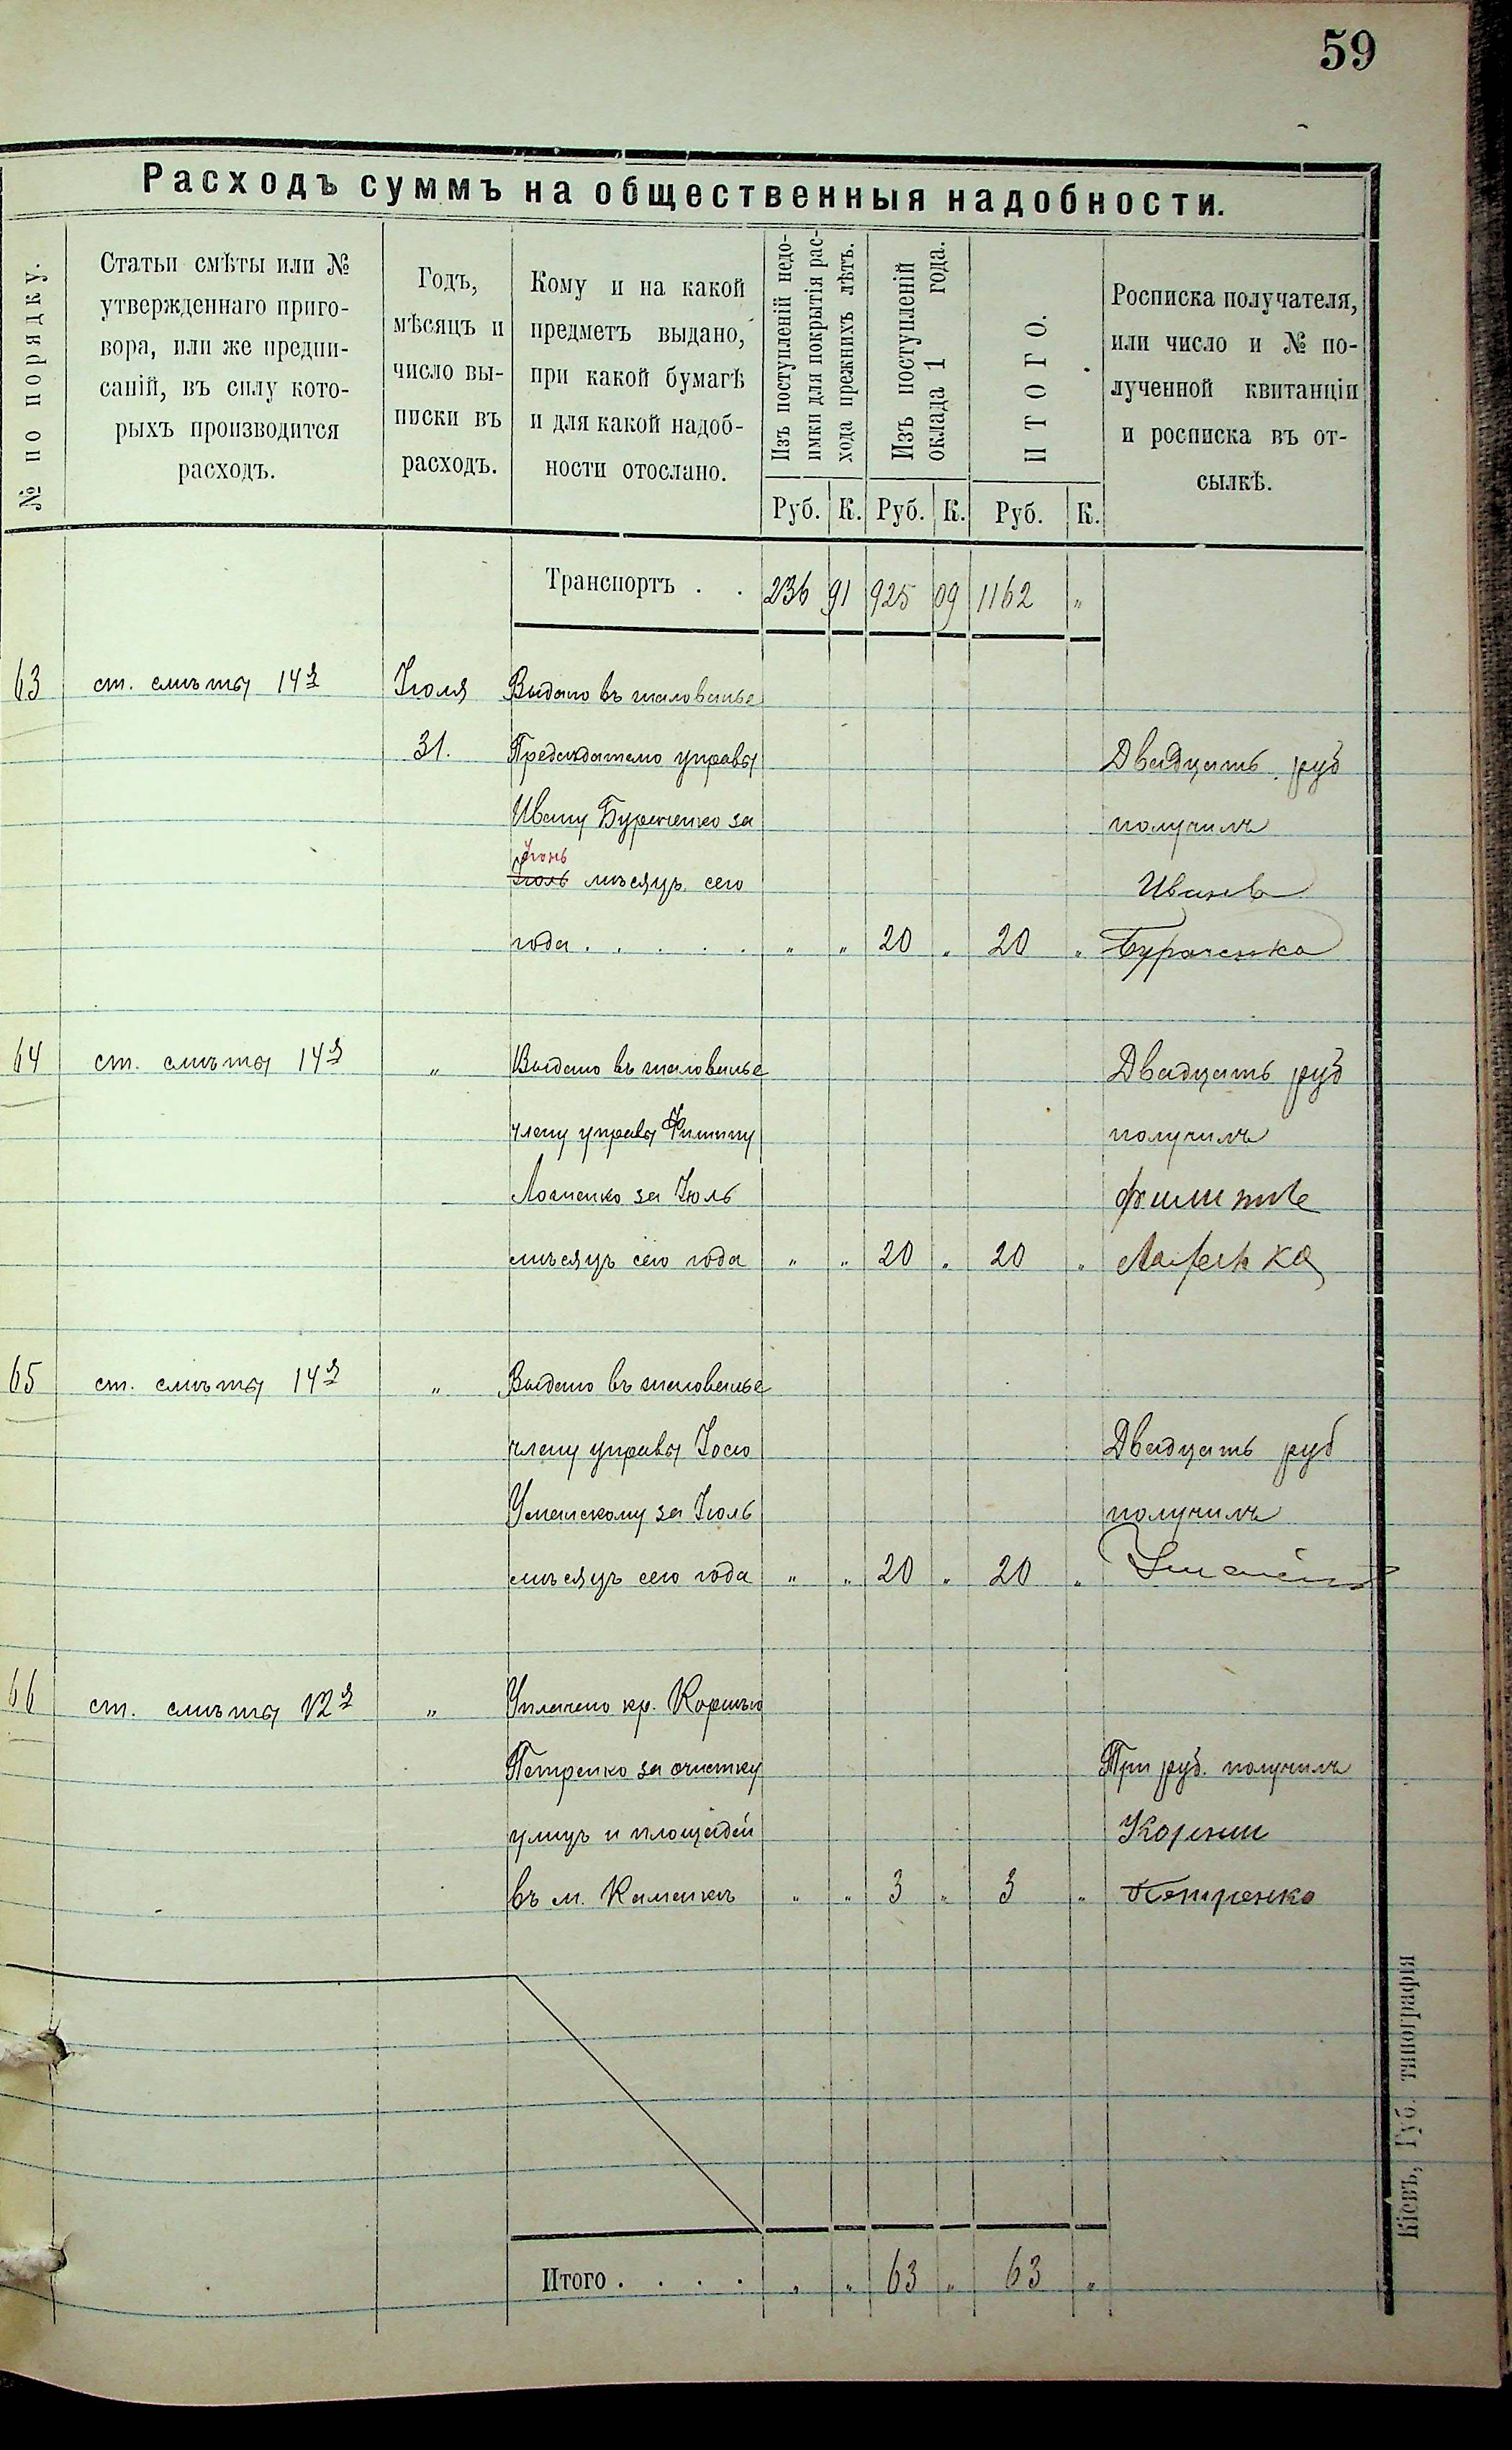 59
Расходъ суммъ на общественныя надобности.
№ по порядку.
Статьи смѣты или №
утвержденнаго приго-
вора, или же предпи-
саній, въ силу кото-
рыхъ производится
расходъ.
Годъ,
мѣсяцъ и
число вы-
писки въ
расходъ.
Кому и на какой
предметъ выдано,
при какой бумагѣ
и для какой надоб-
ности отослано.
Изъ поступленій недо-
имки для покрытія рас-
хода прежнихъ лѣтъ.
Изъ поступленій
оклада 1 года.
ИТОГО.
Росписка получателя,
или число и № по-
лученной квитанціи
и росписка въ от-
сылкѣ.
Руб. К. Руб. К. Руб. К.
Транспортъ . . 236 91 925 09 1162 "
63 ст. смѣты 14я Іюля Выдано въ жалованье
31. Предсѣдателю управы Двадцать руб
Ивану Бураченко за получилъ
Іюнь
Іюль мѣсяцъ сего Иванъ
года . . . . . " " 20 " 20 " Бураченко
64 ст. смѣты 14я " Выдано въ жалованье Двадцать руб
члену управы Филиппу получилъ
за Іюль Филиппъ
мѣсяцъ сего года " " 20 " 20 "
65 ст. смѣты 14я " Выдано въ жалованье
члену управы Іосю Двадцать руб
Уманскому за Іюль получилъ
мѣсяцъ сего года " " 20 " 20 " Уманскій
66 ст. смѣты 12я " Уплачено кр. Корнѣю
Петренко за очистку Три руб. получилъ
улицъ и площадей Корній
въ м. Каменкѣ " " 3 " 3 " Петренко
Итого . . . . " " 63 " 63 "
Кіевъ, Губ. типографія